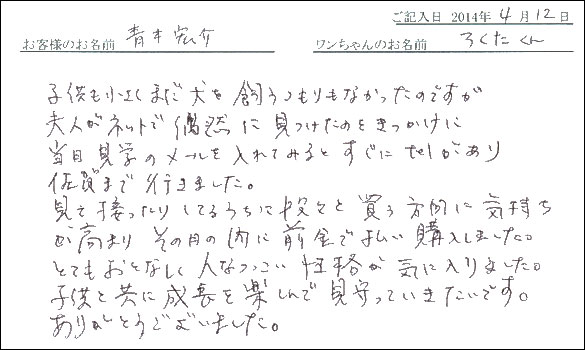 ご記入日 2014年 4月 12日
お客様のお名前 青木 宏介 ワンちゃんのお名前 ろくたくん
子供も小さくまだ犬を飼うつもりもなかったのですが
夫人がネットで偶然に見つけたのをきっかけに
当日見学のメールを入れてみるとすぐにtelがあり
佐賀まで行きました。
見て接したりしてるうちに段々と買う方向に気持ち
が高まり その日の内に前金で払い購入しました。
とてもおとなしく人なつっこい性格が気に入りました。
子供と共に成長を楽しんで見守っていきたいです。
ありがとうございました。